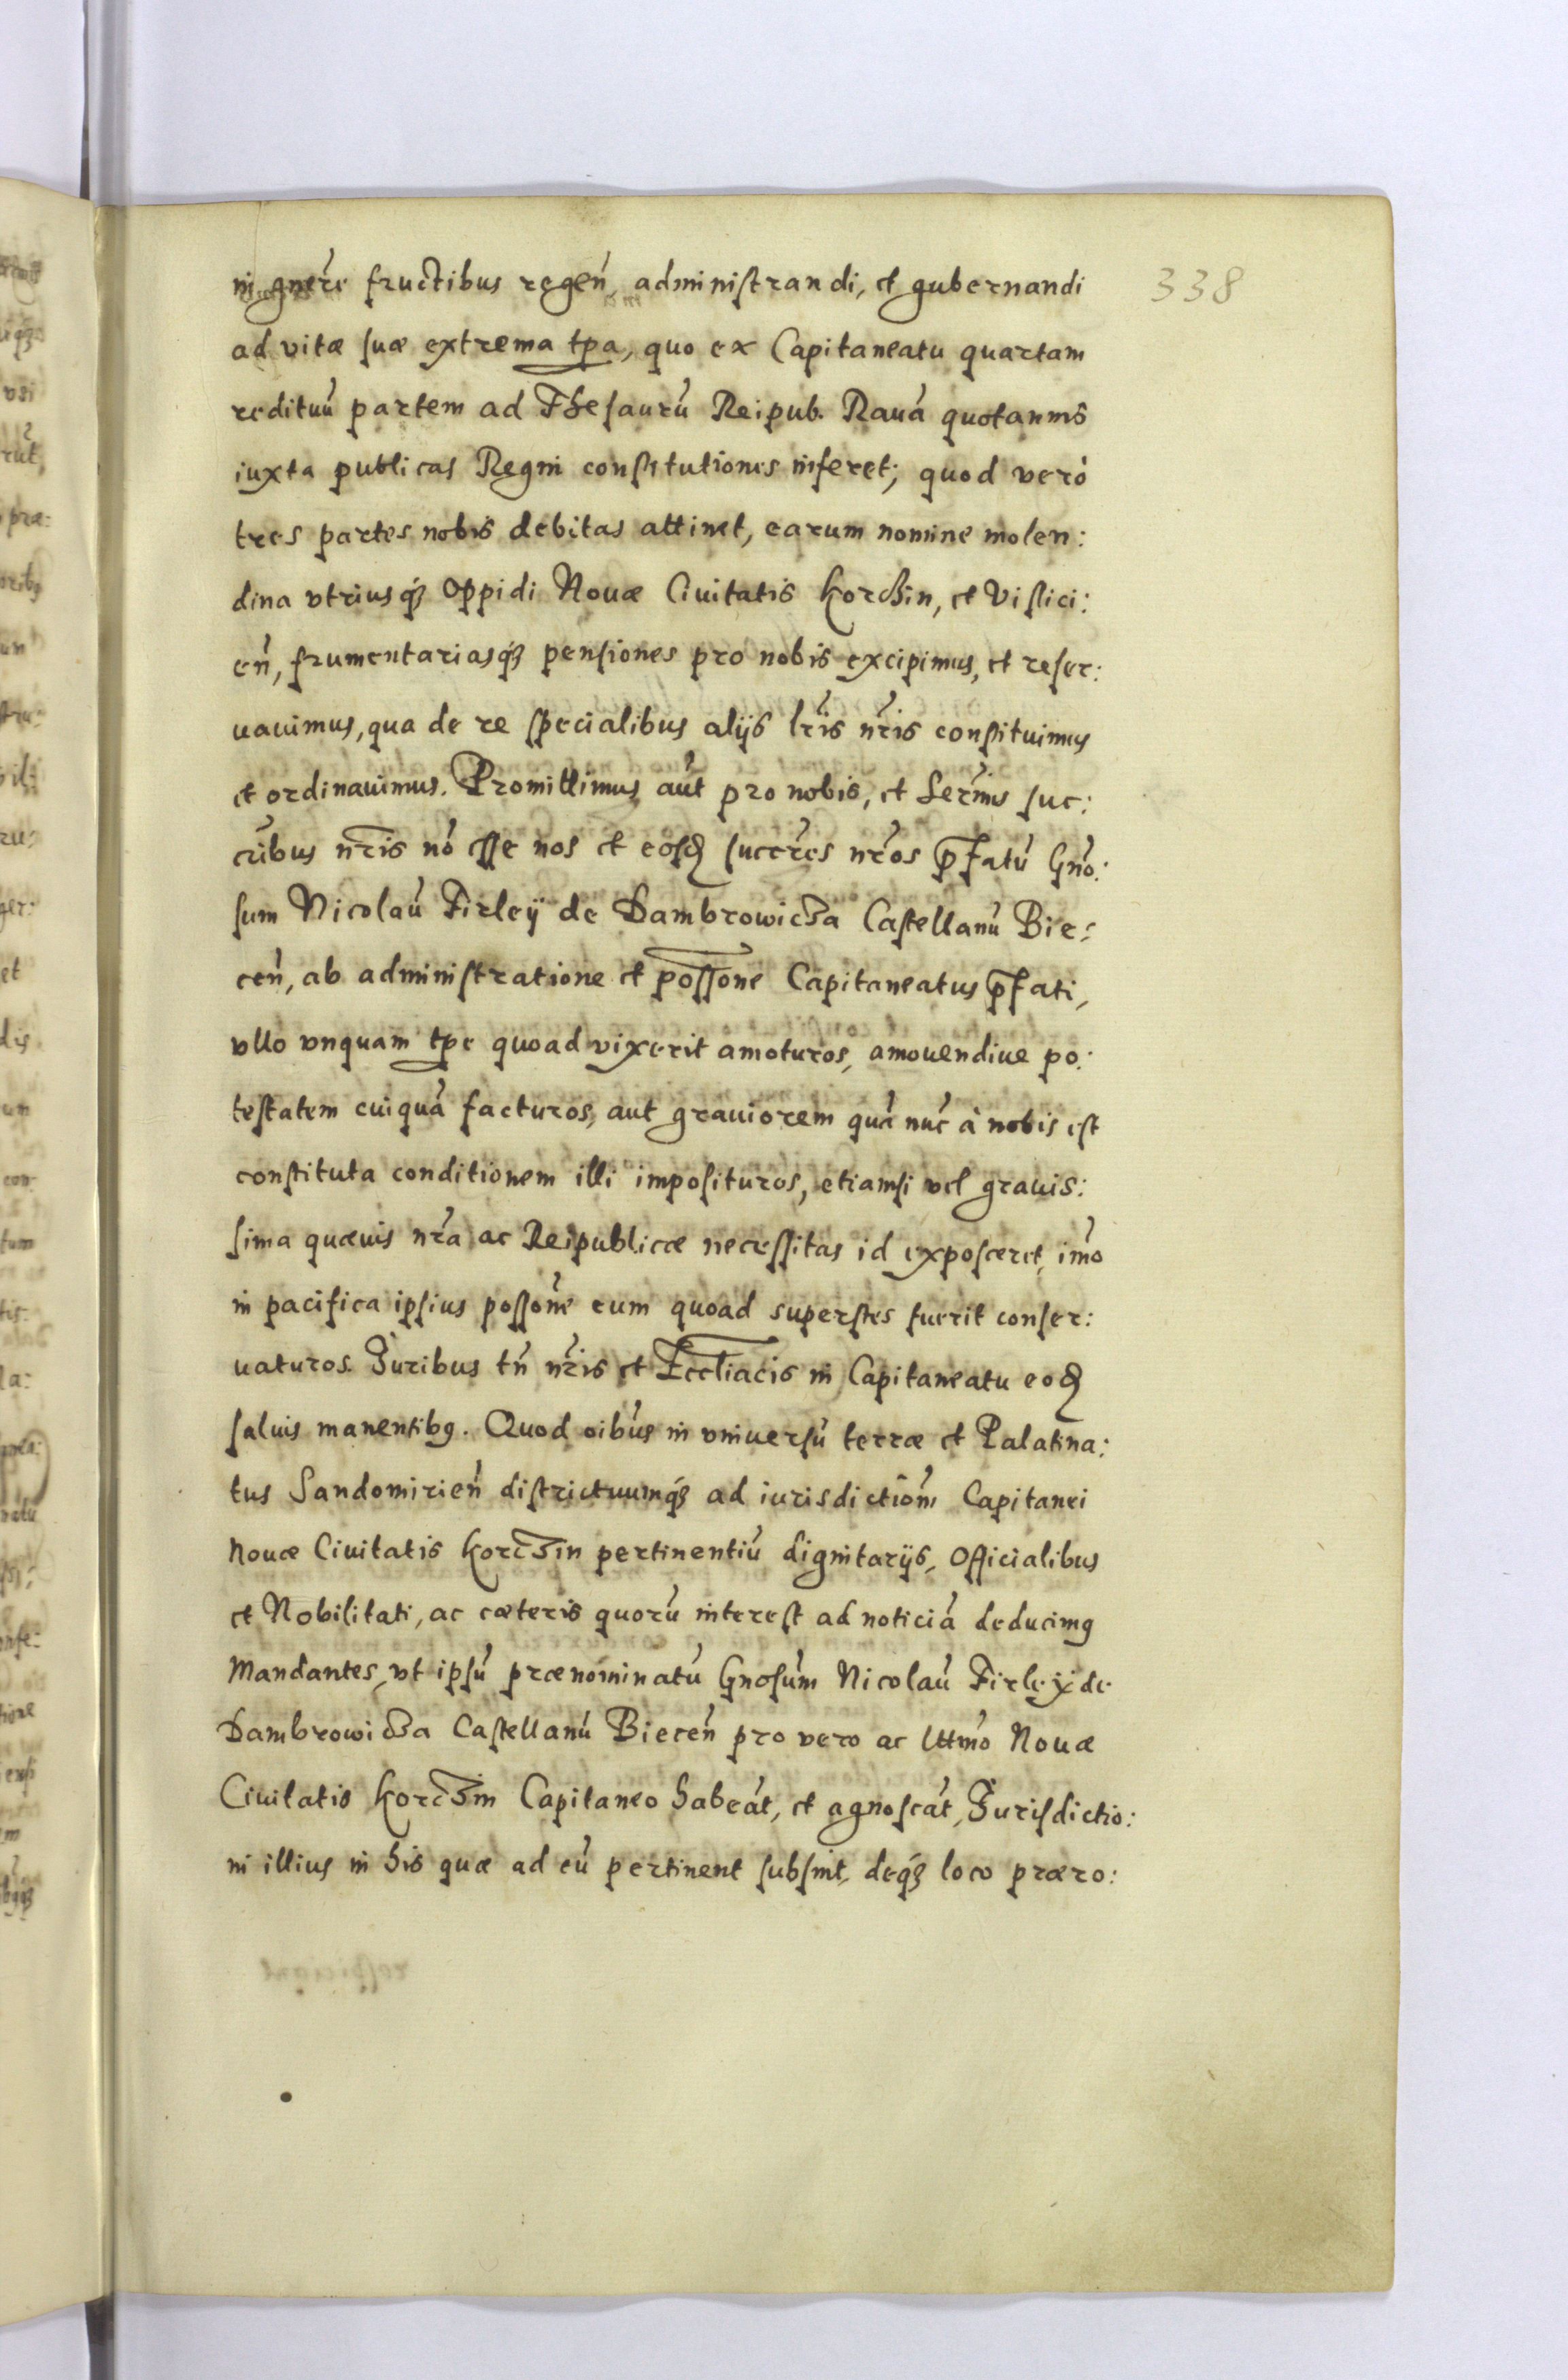 338
in gnere fructibus regen̄, administrandi, et gubernandi
ad vitæ suæ extrema tpa, quo ex Capitaneatu quartam
redituū partem ad Thesaurū Reipub. Rauā quotannis
iuxta publicas Regni constitutiones inferet; quod verò
tres partes nobis debitas attinet, earum nomine molen:
dina vtriusq́ꝫ Oppidi Nouæ Ciuitatis Korchin, et Vislici:
en̄, frumentariasq́ꝫ pensiones pro nobis excipimus, et reser:
uauimus, qua de re specialibus alijs lris nris constituimus
et ordinauimus. Promittimus aūt pro nobis, et Sermis suc:
cribus nris nō esse nos et eosd succres nros p̄fatū Gno:
sum Nicolaū Firleÿ de Dambrowicza Castellanū Bie:
cen̄, ab administratione et possone Capitaneatus p̄fati,
vllo vnquam tpe quoad vixerit amoturos, amouendiue po:
testatem cuiquā facturos, aut grauiorem quā nūc à nobis est
constituta conditionem illi imposituros, etiamsi vel grauis:
sima quæuis nra ac Reipublicæ necessitas id exposceret, imo
in pacifica ipsius possone eum quoad superstes fuerit conser:
uaturos. Iuribus tn̄ nris et Eccliacis in Capitaneatu eod
saluis manentibꝯ. Quod oibus in vniuersū terræ et Palatina:
tus Sandomirien̄ districtuumq́ꝫ ad iurisdictiōm Capitanei
Nouæ Ciuitatis Korczin pertinentiū dignitarijs, Officialibus
et Nobilitati, ac cæteris quorū interest ad noticiā deducimꝯ
Mandantes, vt ipsū prænominatū Gnosum Nicolaū Firleÿ de
Dambrowicza Castellanū Biecen̄ pro vero ac lttmo Nouæ
Ciuitatis Korczin Capitaneo habeāt, et agnoscāt, Iurisdictio:
ni illius in his quæ ad eū pertinent subsint, deq́ꝫ loco præro: